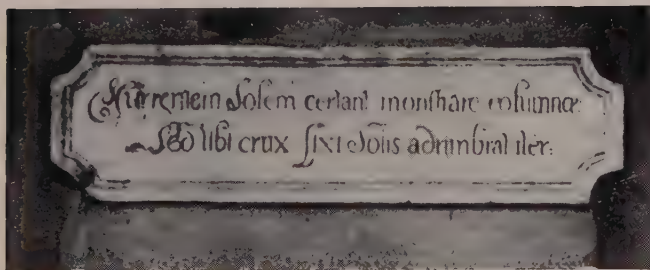 Surgentem Solem certant monstrare columnæ
Sed tibi crux fixi Solis adumbrat iter.